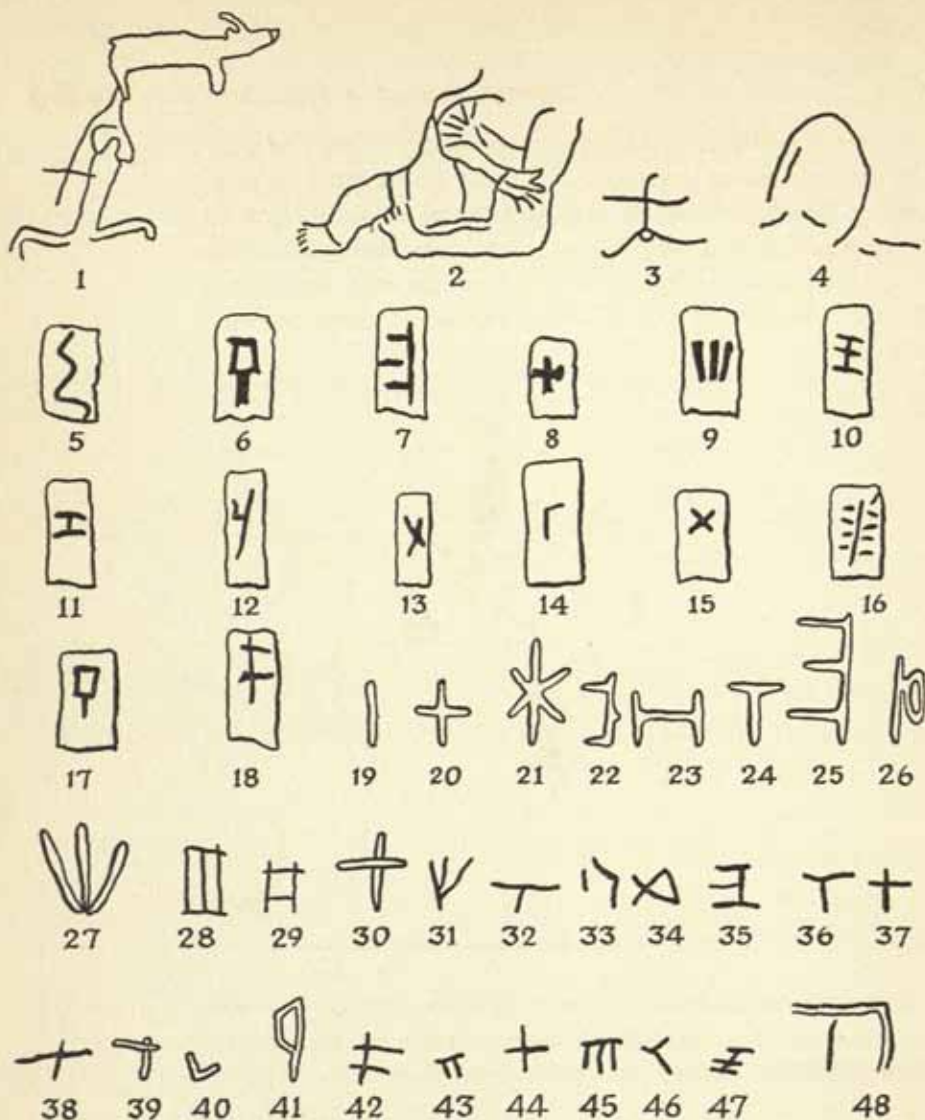 1 2 3 4
5 6 7 8 9 10
11 12 13 14 15 16
17 18 19 20 21 22 23 24 25 26
27 28 29 30 31 32 33 34 35 36 37
38 39 40 41 42 43 44 45 46 47 48